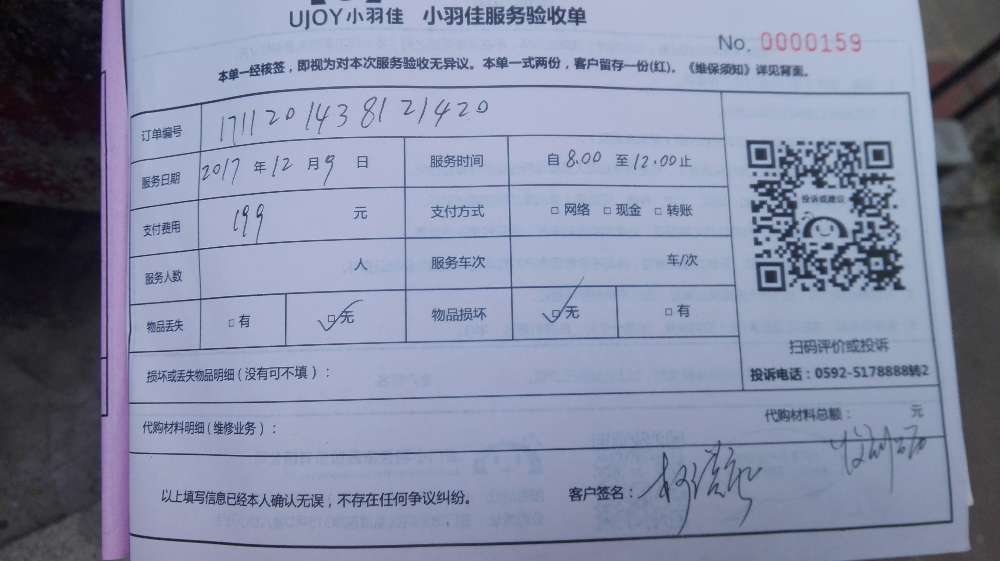 UJOY小羽佳 小羽佳服务验收单
No. 0000159
本单一经核签，即视为对本次服务验收无异议。本单一式两份，客户留存一份(红)。《维保须知》详见背面。
订单编号 171120143812142​0
服务日期 2017 年 12 月 9 日 服务时间 自 8.00 至 12.00 止
支付费用 199 元 支付方式 □ 网络 □ 现金 □ 转账
服务人数 人 服务车次 车/次
物品丢失 □ 有 □ 无 物品损坏 □ 无 □ 有
投诉或建议
扫码评价或投诉
投诉电话：0592-5178888转2
损坏或丢失物品明细（没有可不填）：
代购材料明细（维修业务）： 代购材料总额： 元
以上填写信息已经本人确认无误，不存在任何争议纠纷。 客户签名：